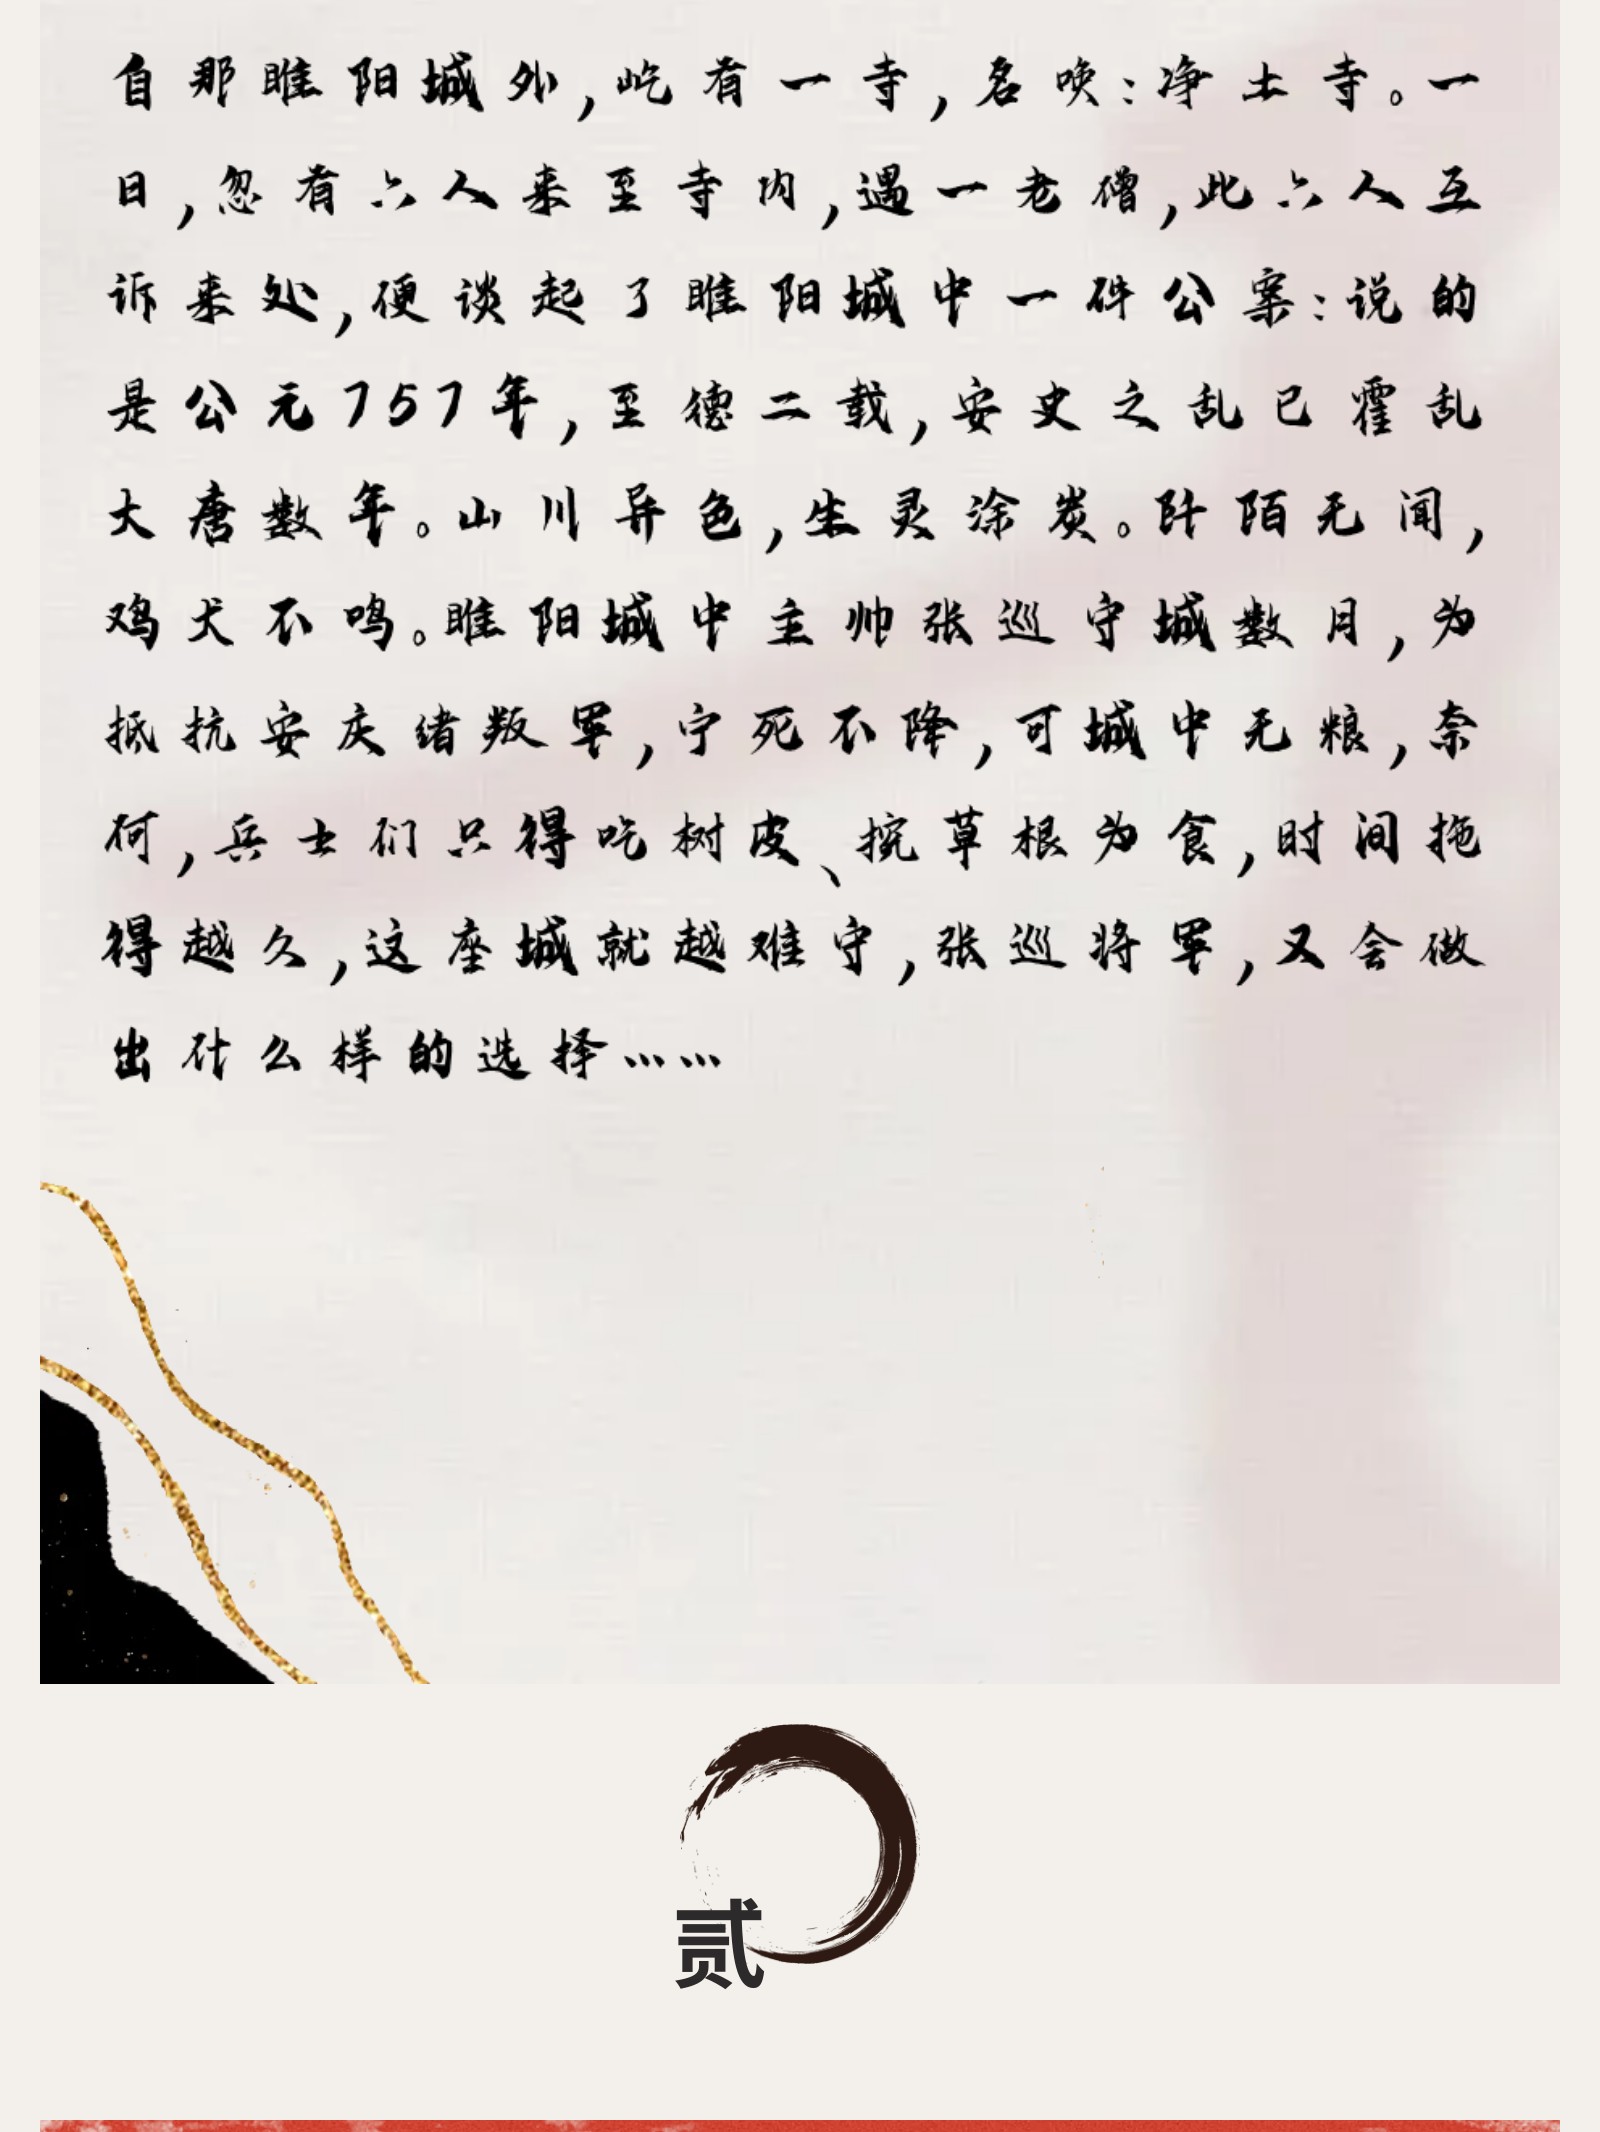 自那睢阳城外,屹有一寺,名唤:净土寺。一
日,忽有六人来至寺内,遇一老僧,此六人互
诉来处,便谈起了睢阳城中一件公案:说的
是公元757年,至德二载,安史之乱已霍乱
大唐数年。山川异色,生灵涂炭。阡陌无闻,
鸡犬不鸣。睢阳城中主帅张巡守城数月,为
抵抗安庆绪叛军,宁死不降,可城中无粮,奈
何,兵士们只得吃树皮、挖草根为食,时间拖
得越久,这座城就越难守,张巡将军,又会做
出什么样的选择……
贰